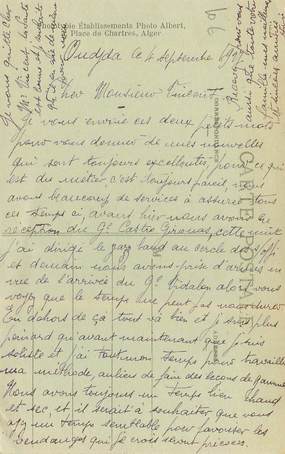 Comptoir Établissements Photo Albert,
Place de Chartres, Alger
Oudjda le 4 septembre
Cher Monsieur Vincent
Je vous envoie ces deux petits mots
pour vous donner de mes nouvelles
qui sont toujours excellentes, pour ce qui
est du métier c'est toujours pareil, nous
avons beaucoup de services à assurer tous
ces temps ci, avant hier nous avons eu
réception du Gl Castro Girona, cette nuit
j'ai dirigé le jazz band au cercle des
et demain nous avons prise d'armes en
vue de l'arrivée du Gl Vidalon alors vous
voyez que le temps ne peut pas nous durer
En dehors de ça tout va bien et je suis plus
peinard qu'avant maintenant que je suis
soliste et j'ai tout mon temps pour travailler
ma méthode, au lieu de faire des leçons de gammes
Nous avons toujours un temps bien chaud
et sec, et il serait à souhaiter que vous
ayez un temps semblable pour favoriser les
vendanges qui je crois seront précoces.
Je vous quitte cher
Mr Vincent
Recevez
CARTE POSTALE
CORRESPONDANCE